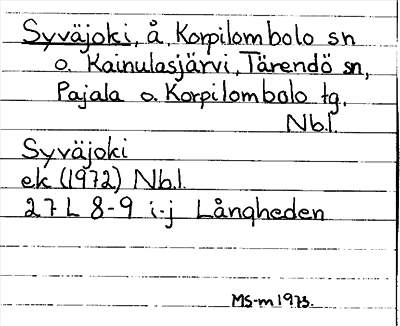 Syväjoki, å, Korpilombolo sn
o. Kainulasjärvi, Tärendö sn,
Pajala o. Korpilombolo tg,
Nb.l.
Syväjoki
ek (1972) Nb.l.
27 L 8-9 i-j Långheden
MS-m 1973.